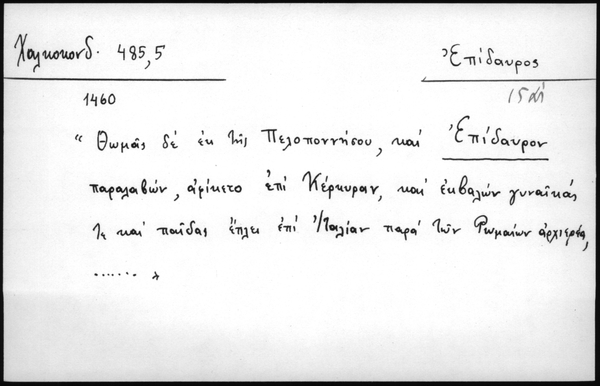 Χαλκοκονδ. 485,5
Ἐπίδαυρος
15 αἰ
1460
“ Θωμᾶς δέ ἐκ τῆς Πελοποννήσου, καί Ἐπίδαυρον
παραλαβών, ἀφίκετο ἐπί Κέρκυραν, καί ἐκβαλών γυναῖκάς
τε καί παῖδας ἔπλει ἐπί Ἰταλίαν παρά τῶν Ῥωμαίων ἀρχιερέα,
....... »